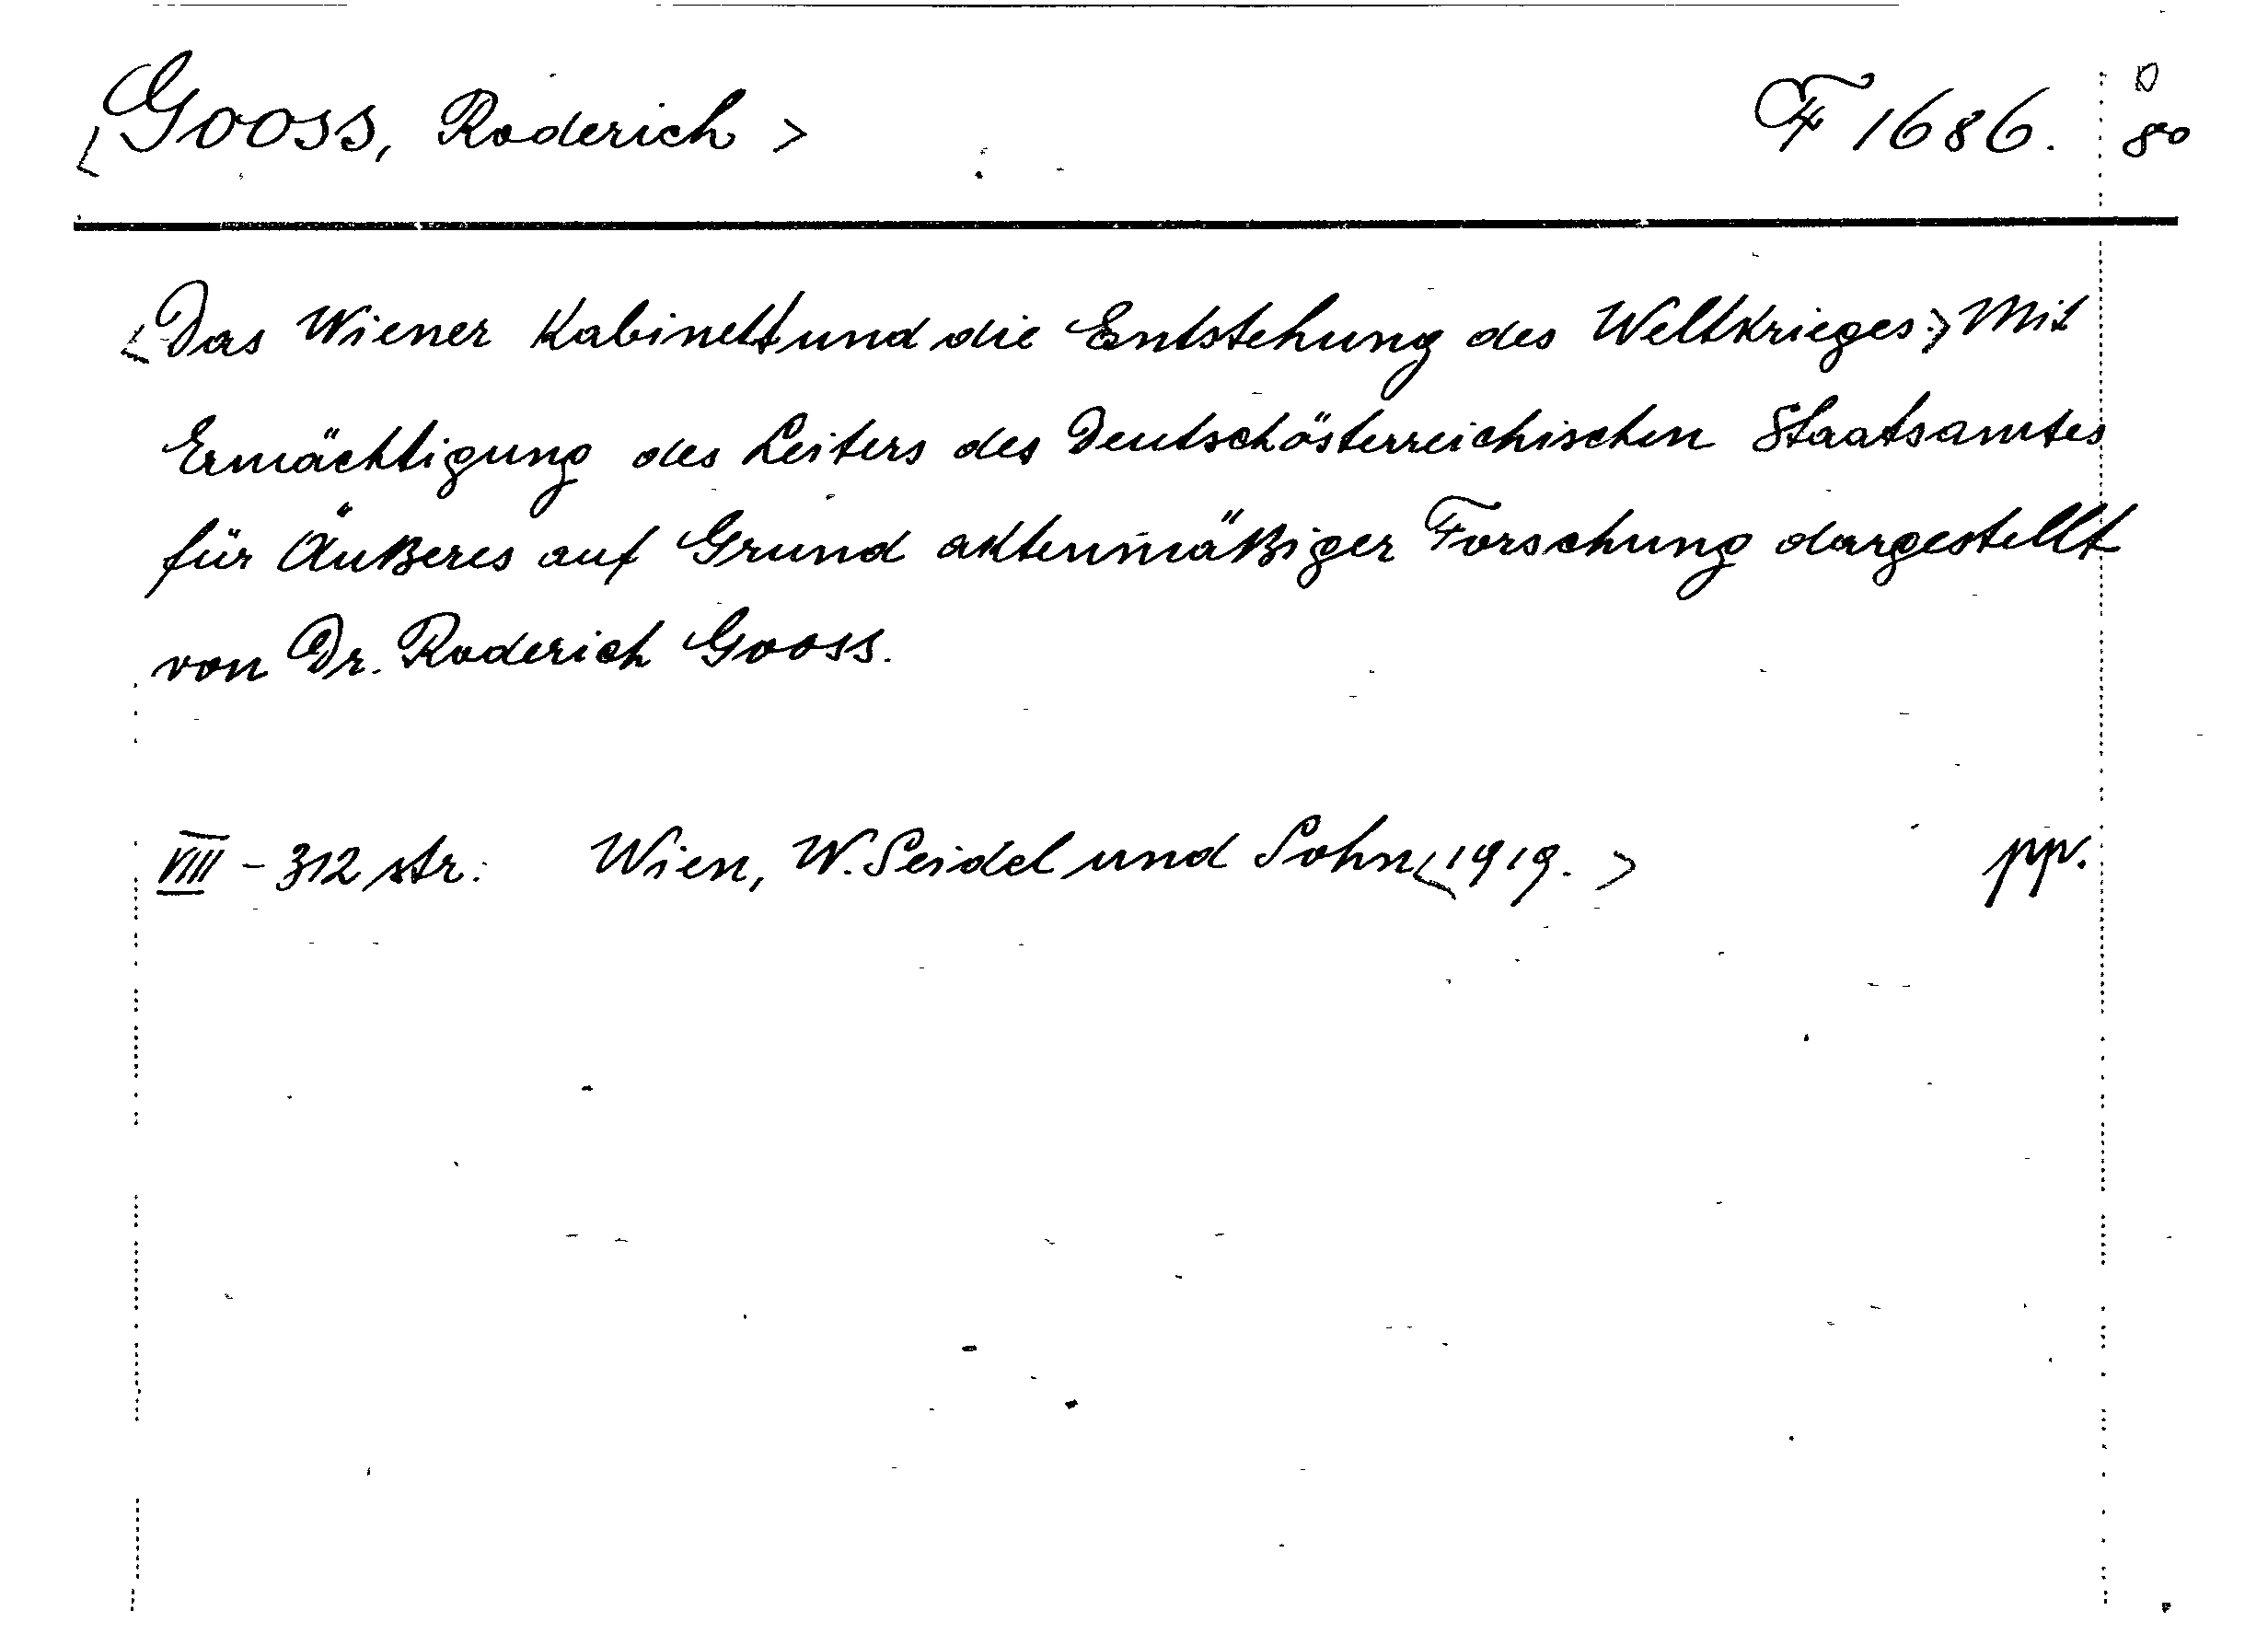 <Gooss, Roderich> F 1686. D
8°
<Das Wiener Kabinett und die Entstehung des Weltkrieges.> Mit
Ermächtigung des Leiters des Deutschösterreichischen Staatsamtes
für Äußeres auf Grund aktenmäßiger Forschung dargestellt
von Dr. Roderich Gooss.
VIII - 312 str. Wien, W. Seidel und Sohn <1919.> pp.